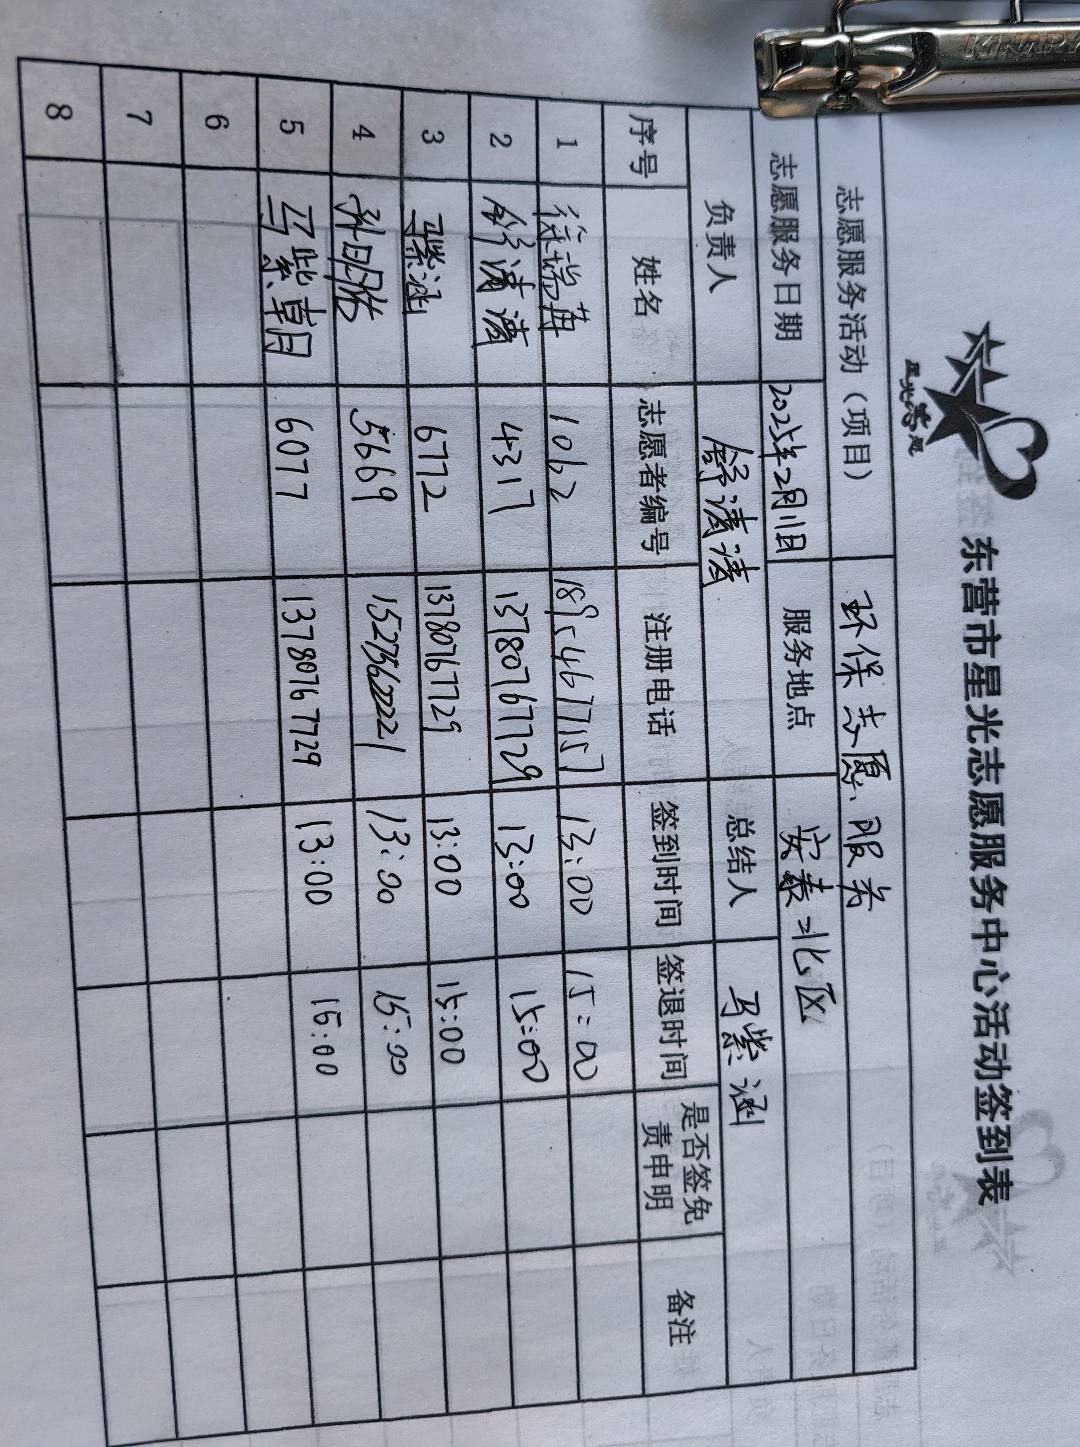 东营市星光志愿服务中心活动签到表
志愿服务活动（项目） 环保志愿服务
志愿服务日期 2025年2月11日 服务地点 安泰北区
负责人 舒清清 总结人 马紫涵
序号 姓名 志愿者编号 注册电话 签到时间 签退时间 是否签免责申明 备注
1 徐瑞苒 1062 18954677157 13:00 15:00
2 舒清清 4317 13780767729 13:00 15:00
3 马紫涵 6772 13780767729 13:00 15:00
4 5669 13:00 15:00
5 马紫朝 6077 13780767729 13:00 15:00
6
7
8